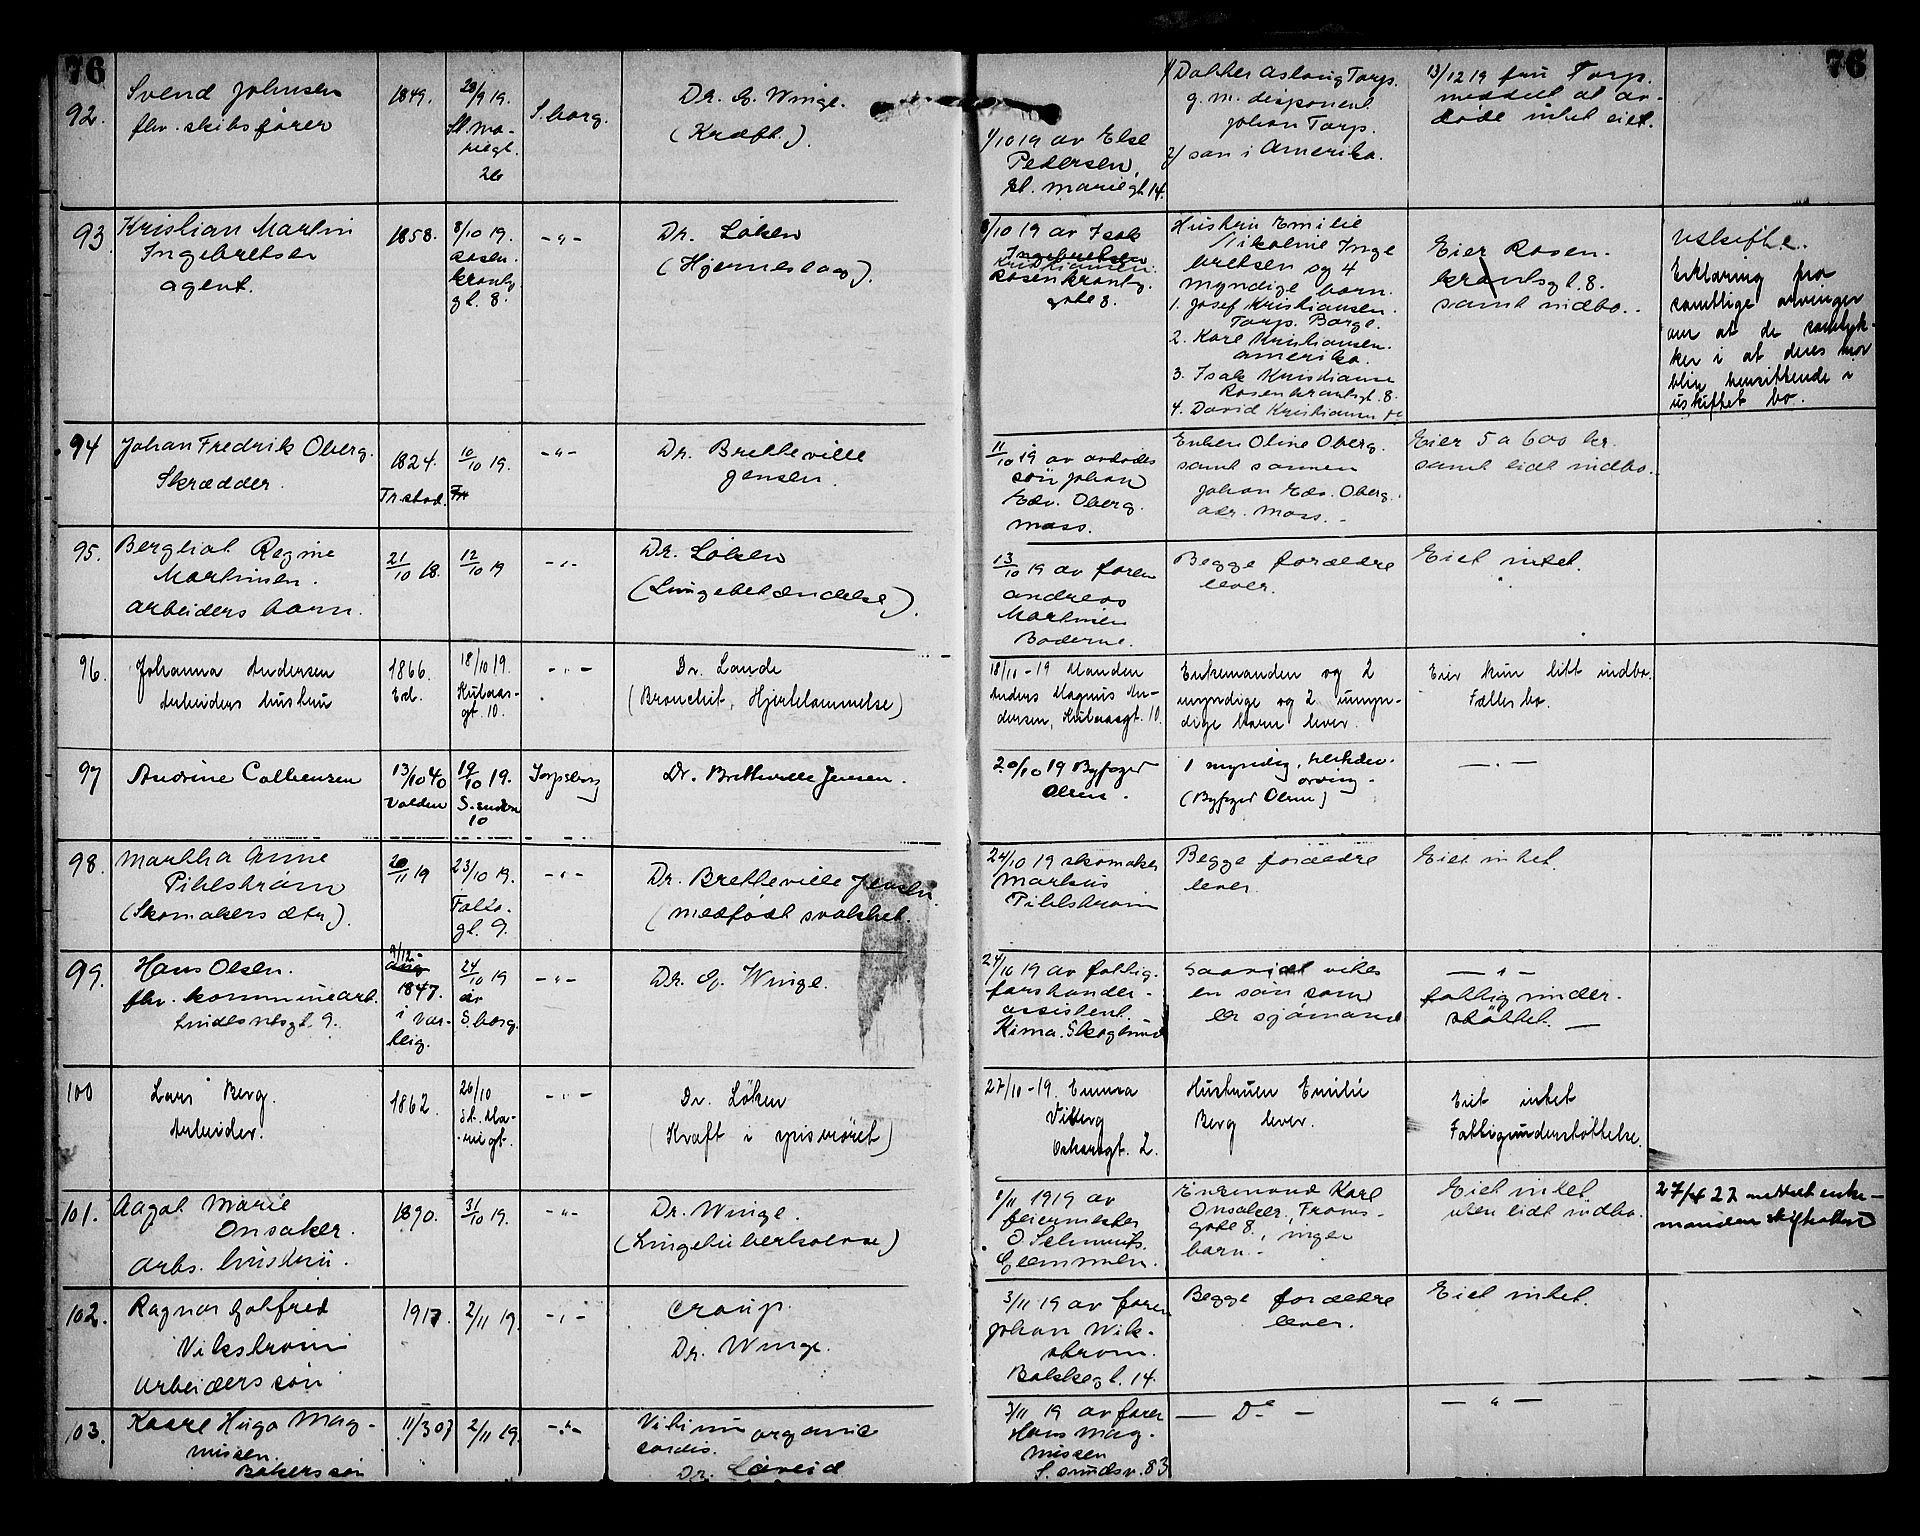 76
76
92.
Svend Johnsen
fhv. skibsfører
1849.
28/9 19.
St. Ma-
riegt.
26
S.borg.
Dr. G. Winge.
(Kræft.)
1/10 19 av Else
Pedersen,
St. mariegt 14.
1/ Datter Aslaug Torp.
g. m. disponent
Johan Torp.
2/ søn i Amerika.
13/12 19 fru Torp.
meddelt at av-
døde intet eiet.
93
Kristian Martin
Ingebretsen
agent.
1858.
8/10 19.
Rosen.
krantz
gt. 8.
-"-
Dr. Løken
(Hjerneslag).
8/10 19 av Isak
Ingebretsen
Kristiansen.
Rosenkrantz.
gate 8.
Hustru Emilie
Nikoline Inge
bretsen og 4
myndige barn.
1. Josef Kristiansen.
Torp. Borge.
2. Karl Kristiansen.
Amerika.
3. Isak Kristianse
Rosenkrantzgt. 8.
4. David Kristiansen
Eier Rosen-
krantsgt. 8.
samt indbo.
Uskifte.
Erklæring fra
samtlige arvinger
om at de samtyk-
ker i at deres mor
blir hensittende i
uskiftet bo.
94
Johan Fredrik Oberg.
Skrædder.
1824.
Tr.stad.
10/10 19.
Fr
-"-
Dr. Bretteville
Jensen.
11/10 19 av avdødes
søn Johan
Edv. Oberg.
Moss.
Enken Oline Oberg.
samt sønnen
Johan Edv. Oberg.
adr. Moss. -
Eier 5 a 600 kr.
samt lidt indbo.
95.
Bergliot Regine
Martinsen.
arbeiders barn.
21/10 18.
12/10 19
-"-
Dr. Løken
(Lungebetændelse).
13/10 19 av faren
Andreas
Martinsen
Boderne.
Begge forældre
lever.
Eiet intet.
96.
Johanna Andersen
Arbeiders hustru
1866.
Ed.
18/10 19.
Kulaas-
gt. 10.
-"-
Dr. Lande
(Bronchit, Hjertelammelse)
18/11-19 Manden
Anders Magnus An-
dersen, Kulaasgt. 10.
Enkemanden og 2
myndige og 2 umyn-
dige barn lever.
Eier kun litt indbo.
Fælles bo.
97
Andrine Cathensen
13/10 40
Volden
19/10 19.
S.
10
Sarpsborg
Dr. Bretteville Jensen.
20/10 19 Byfoged
Olsen.
1 myndig,
arving.
(Byfoged Olsen)
-"-
98.
Martha Anne
Pihlstrøm
(Skomakers dtr.)
20/11 19
23/10 19.
gt. 9.
-"-
Dr. Bretteville Jensen
(medfødt svakhet.
24/10 19 skomaker
Markus
Pihlstrøm
Begge forældre
lever.
Eiet intet.
99.
Hans Olsen.
fhv. kommunearb.
9/12-
1847.
i Var-
teig.
24/10 19
av
S.borg.
-"-
Dr. G. Winge.
24/10 19 av fattig-
forstander-
assistent.
Kima. Skoglund
Saavidt vites
en søn som
er sjømand
-"-
fattigunder-
støttet. -
100
Lars Berg.
Arbeider.
1862.
26/10
St. Ma-
riegt.
-"-
Dr. Løken
(Kræft i spiserøret)
27/10-19. Emma
Viberg
Oskarsgt. 2.
Hustruen Emilie
Berg lever.
Eiet intet
Fattigunderstøttelse.
101.
Aagot Marie
Onsaker.
Arbs. hustru.
1890.
31/10 19.
-"-
Dr. Winge.
(Lungetuberkulose)
1/11 1919 av
feiermester
O
Glemmen.
Enkemand Karl
Onsaker,
gate 8., ingen
barn. -
Eiet intet.
uten lidt indbo.
27/4 22 meddelt enke-
manden skifteattest
102.
Ragnar Gotfred
Vikstrøm
Arbeiders søn
1917
2/11 19.
-"-
Croup.
Dr. Winge.
3/11 19 av faren
Johan Wik-
strøm.
14.
Begge forældre
lever.
Eiet intet.
103.
Kaare Hugo Mag-
nussen.
Bakers søn
11/3 07
2/11 19.
-"-
Vitium organic
cordis.
Dr.
7/11 19 av faren
Hans Mag-
nussen
S. sundsv. 83
- Do -
- " -